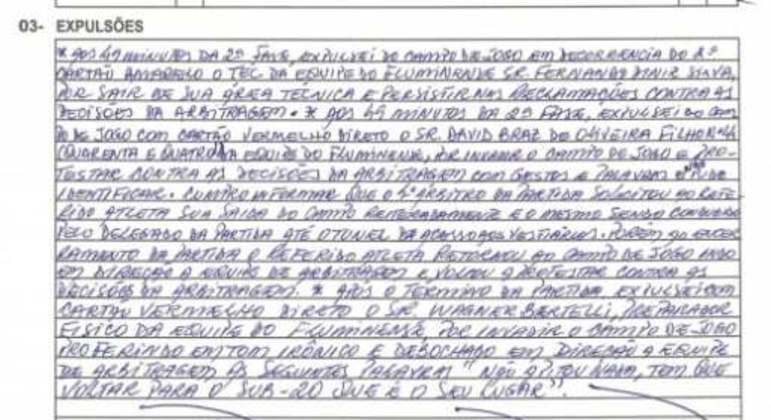 03- EXPULSÕES
* AOS 49 MINUTOS DA 2ª FASE, EXPULSEI DO CAMPO DE JOGO EM DECORRENCIA DO 2º
CARTÃO AMARELO O TEC. DA EQUIPE DO FLUMINENSE SR. FERNANDO DINIZ SILVA,
POR SAIR DE SUA ÁREA TECNICA E PERSISTIR NAS RECLAMAÇÕES CONTRA AS
DECISÕES DA ARBITRAGEM. * AOS 49 MINUTOS DA 2ª FASE, EXPULSEI DO CAM
PO DE JOGO COM CARTÃO VERMELHO DIRETO O SR. DAVID BRAZ DE OLIVEIRA FILHO Nº44
QUARENTA E QUATRO DA EQUIPE DO FLUMINENSE, POR INVADIR O CAMPO DE JOGO E PRO-
TESTAR CONTRA AS DECISÕES DA ARBITRAGEM COM GESTOS E PALAVRAS PUDE
IDENTIFICAR. CUMPRO INFORMAR QUE O 4º ÁRBITRO DA PARTIDA SOLICITOU AO REFE
RIDO ATLETA SUA SAIDA DO CAMPO REITERADAMENTE E O MESMO SENDO CONDUZIDO
PELO DELEGADO DA PARTIDA ATÉ O TUNEL DE ACESSO AOS VESTIÁRIOS. PORÉM AO ENCER
RAMENTO DA PARTIDA O REFERIDO ATLETA RETORNOU AO CAMPO DE JOGO INDO
EM DIREÇÃO A EQUIPE DE ARBITRAGEM E VOLTOU A PROTESTAR CONTRA AS
DECISÕES DA ARBITRAGEM. * APÓS O TERMINO DA PARTIDA EXPULSEI COM
CARTÃO VERMELHO DIRETO O SR. WAGNER BERTELLI, PREPARADOR
FISICO DA EQUIPE DO FLUMINENSE POR INVADIR O CAMPO DE JOGO
PROFERINDO EM TOM IRÔNICO E DEBOCHADO EM DIREÇÃO A EQUIPE
DE ARBITRAGEM AS SEGUINTES PALAVRAS "NÃO APITOU NADA, TEM QUE
VOLTAR PARA O SUB-20 QUE É O SEU LUGAR".